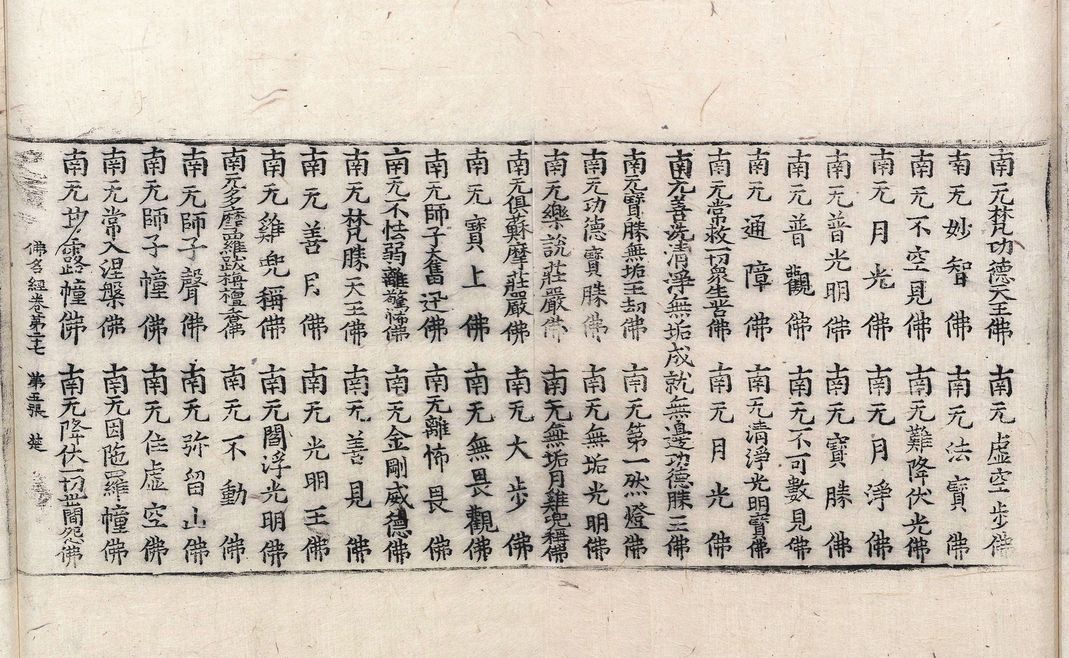 南无梵功德天王佛 南无虛空步佛
南无妙智佛 南无法寶佛
南无不空見佛 南无難降伏光佛
南无月光佛 南无月淨佛
南无普光明佛 南无寶勝佛
南无普觀佛 南无不可數見佛
南无通障佛 南无清淨光明寶佛
南无常救一切衆生苦佛 南无月光佛
南无善洗清淨無垢成就無邊功德勝王佛
南无寶勝無垢王劫佛 南无第一然燈佛
南无功德寶勝佛 南无無垢光明佛
南无樂說莊嚴佛 南无無垢月雞兜稱佛
南无俱蘇摩莊嚴佛 南无大步佛
南无寶上佛 南无無畏觀佛
南无師子奮迅佛 南无離怖畏佛
南无不怯弱離驚怖佛 南无金剛威德佛
南无梵勝天王佛 南无善見佛
南无善月佛 南无光明王佛
南无雞兜稱佛 南无閻浮光明佛
南无多摩羅跋栴檀香佛 南无不動佛
南无師子聲佛 南无弥留山佛
南无師子幢佛 南无住虛空佛
南无常入涅槃佛 南无因陁羅幢佛
南无甘露幢佛 南无降伏一切世間怨佛
佛名經卷第二七 第五張 楚